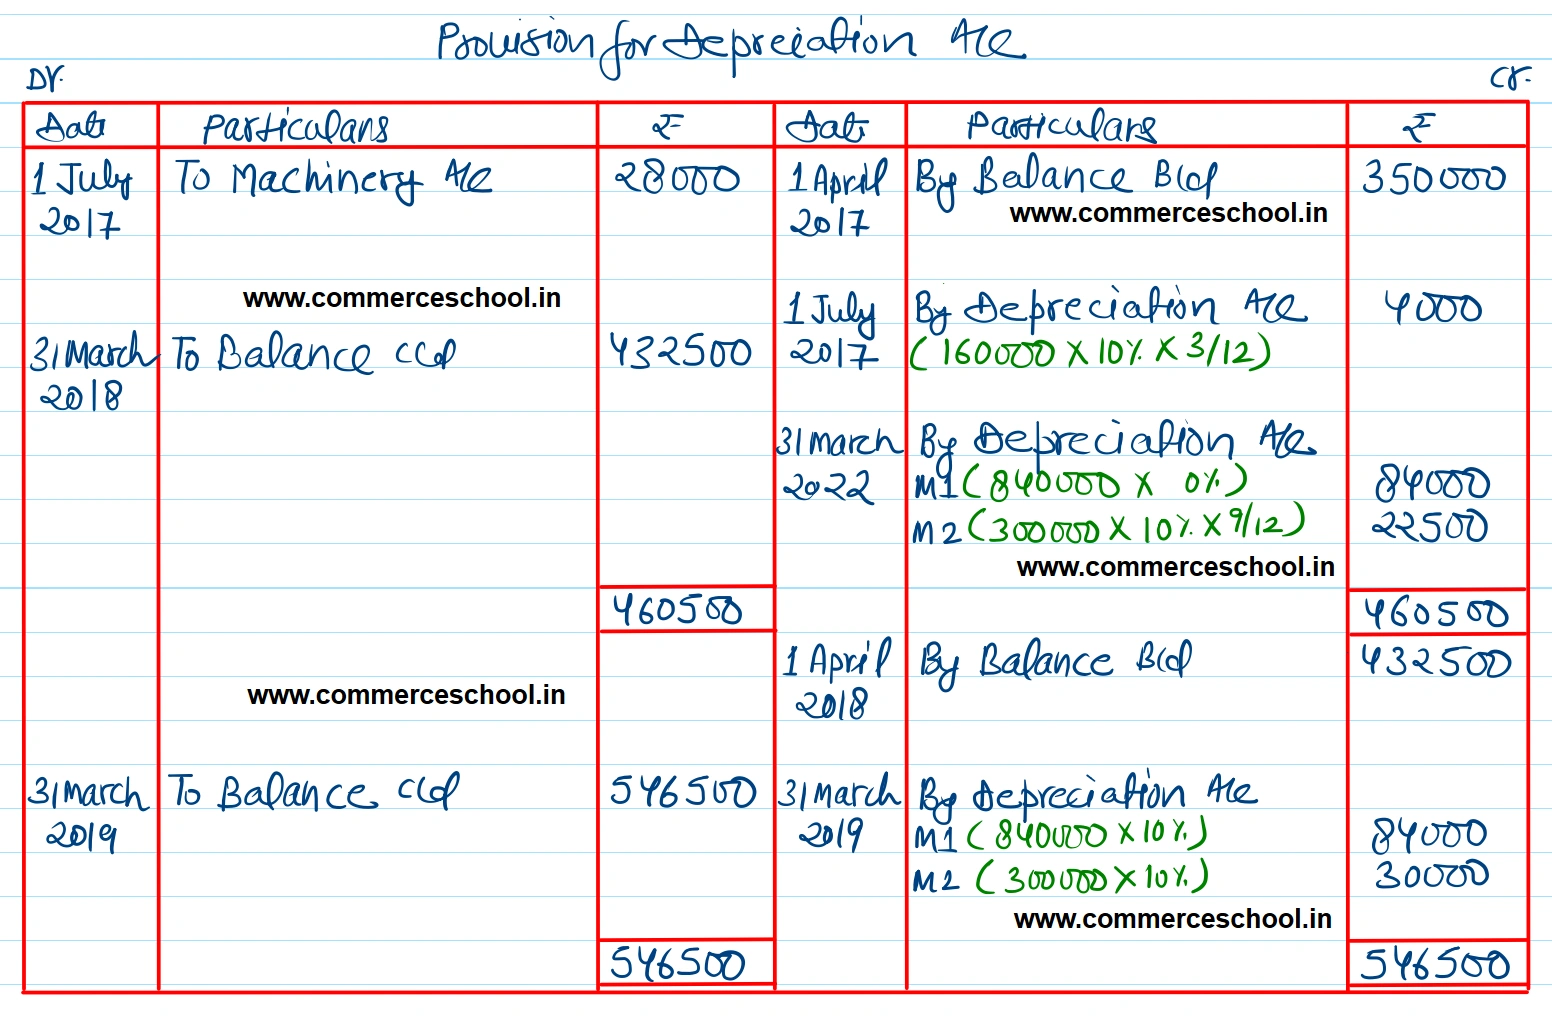 Provision for Depreciation A/c
Dr. Cr.
Date Particulars ₹ Date Particulars ₹
1 July To Machinery A/c 28000 1 April By Balance B/d 350000
2017 2017 www.commerceschool.in
www.commerceschool.in 1 July By Depreciation A/c 4000
31 March To Balance c/d 432500 2017 (160000 X 10% X 3/12)
2018
31 March By Depreciation A/c
2022 M1 (840000 X 0%) 84000
M2 (300000 X 10% X 9/12) 22500
www.commerceschool.in
460500 460500
1 April By Balance B/d 432500
www.commerceschool.in 2018
31 March To Balance c/d 546500 31 March By Depreciation A/c
2019 2019 M1 (840000 X 10%) 84000
M2 (300000 X 10%) 30000
www.commerceschool.in
546500 546500